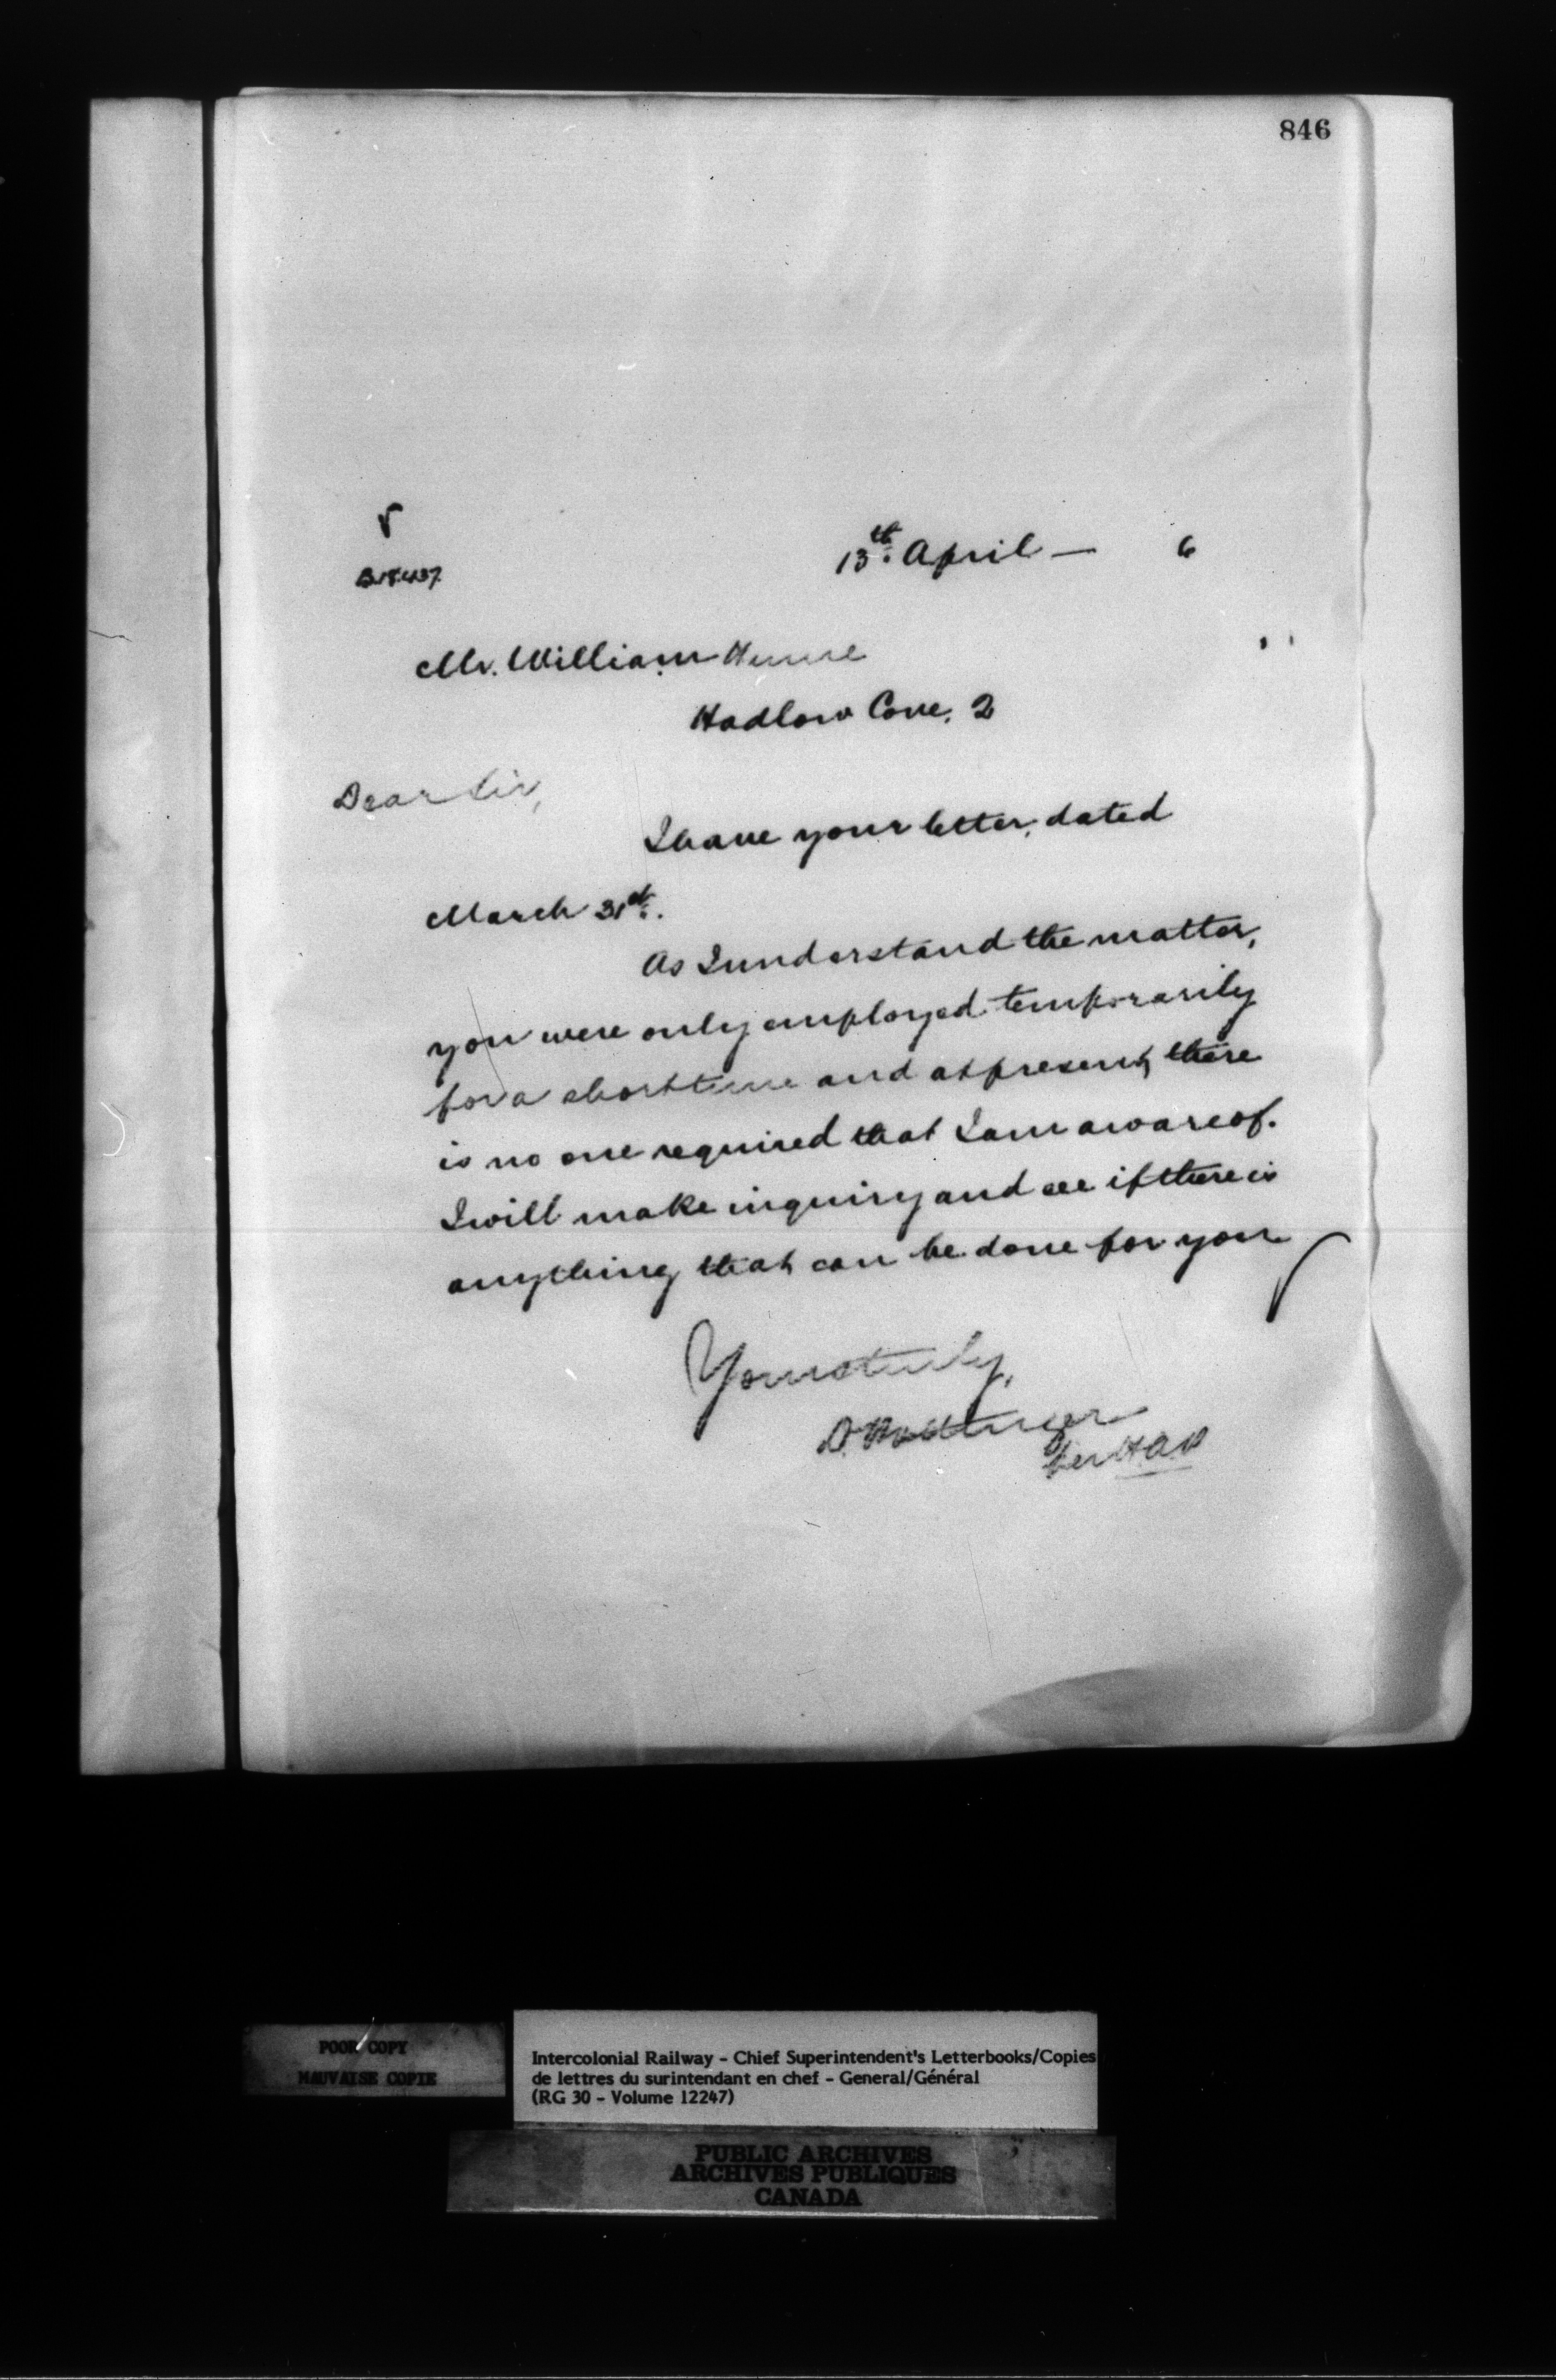 846
13th April — 6
Mr. William
Hadlow Cove, 2
Dear Sir,
I have your letter, dated
March 31st.
As I understand the matter,
you were only employed temporarily
for a short time and at present, there
is no one required that I am aware of.
I will make inquiry and see if there is
anything that can be done for you
Yours truly,
D. Pottinger
Per HAP
POOR COPY
MAUVAISE COPIE
Intercolonial Railway - Chief Superintendent's Letterbooks/Copies
de lettres du surintendant en chef - General/Général
(RG 30 - Volume 12247)
PUBLIC ARCHIVES
ARCHIVES PUBLIQUES
CANADA